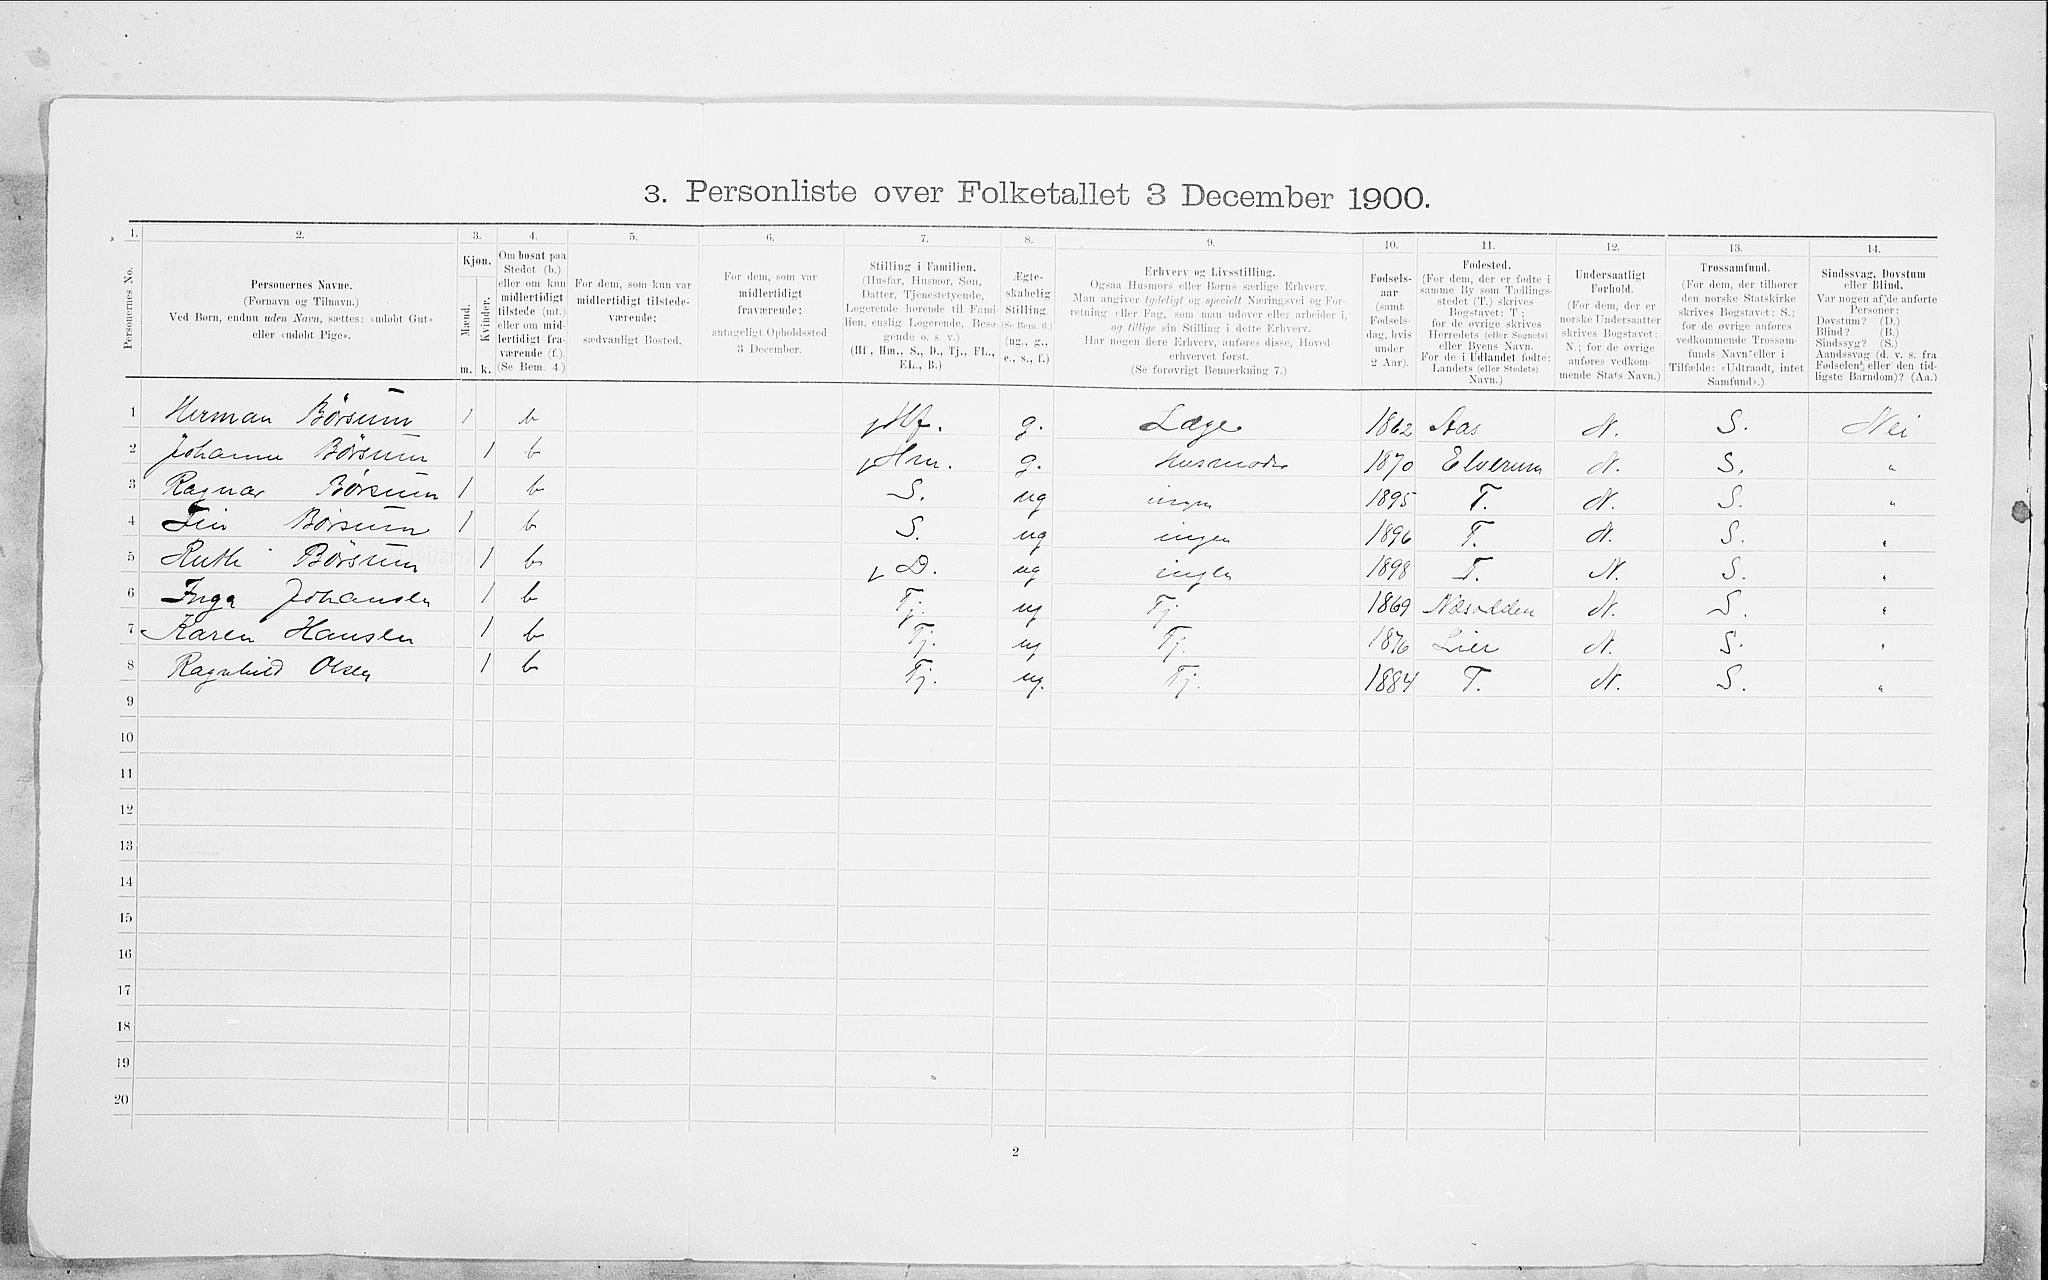 3. Personliste over Folketallet 3 December 1900.
1. 2. 3. 4. 5. 6. 7. 8. 9. 10. 11. 12. 13. 14.
Personernes No.
Personernes Navne.
(Fornavn og Tilnavn.)
Ved Børn, endnu uden Navn, sættes: «udøbt Gut»
eller «udøbt Pige».
Kjøn.
Mænd.
Kvinder.
m. k.
Om bosat paa
Stedet (b.)
eller om kun
midlertidigt
tilstede (mt.)
eller om mid-
lertidigt fra-
værende (f.).
(Se Bem. 4.)
For dem, som kun var
midlertidigt tilstede-
værende:
sædvanligt Bosted.
For dem, som var
midlertidigt
fraværende:
antageligt Opholdssted
3 December.
Stilling i Familien.
(Husfar, Husmor, Søn,
Datter, Tjenestetyende,
Logerende hørende til Fami-
lien, enslig Logerende, Besø-
gende o. s. v.)
(Hf., Hm., S., D., Tj., FL.,
EL., B.)
Ægte-
skabelig
Stilling.
(Se Bem. 6.)
(ug., g.,
e., s., f.)
Erhverv og Livsstilling.
Ogsaa Husmors eller Børns særlige Erhverv.
Man angiver tydeligt og specielt Næringsvei og For-
retning eller Fag, som man udøver eller arbeider i,
og tillige sin Stilling i dette Erhverv.
Har nogen flere Erhverv, anføres disse, Hoved-
erhvervet først.
(Se forøvrigt Bemærkning 7.)
Fødsels-
aar
(samt
Fødsels-
dag, hvis
under
2 Aar).
Fødested.
(For dem, der er fødte i
samme By som Tællings-
stedet (T.) skrives
Bogstavet: T;
for de øvrige skrives
Herredets (eller Sognets)
eller Byens Navn.
For de i Udlandet fødte:
Landets (eller Stedets)
Navn.)
Undersaatligt
Forhold.
(For dem, der er
norske Undersaatter
skrives Bogstavet:
N.; for de øvrige
anføres vedkom-
mende Stats Navn.)
Trossamfund.
(For dem, der tilhører
den norske Statskirke
skrives Bogstavet: S.;
for de øvrige anføres
vedkommende Trossam-
funds Navn eller i
Tilfælde: «Udtraadt, intet
Samfund».)
Sindssvag, Døvstum
eller Blind.
Var nogen af de anførte
Personer:
Døvstum? (D.)
Blind? (B.)
Sindssyg? (S.)
Aandssvag (d. v. s. fra
Fødselen eller den tid-
ligste Barndom)? (Aa.)
1 Herman Børsum 1 b Hf. g. Læge 1862 Aas N. S. Nei
2 Johanne Børsum 1 b Hm. g. Husmoder 1870 Elverum N. S. "
3 Ragnar Børsum 1 b S. ug ingen 1895 T. N. S. "
4 Børsum 1 b S. ug ingen 1896 T. N. S. "
5 Ruth Børsum 1 b D. ug ingen 1898 T. N. S. "
6 Inga Johansen 1 b Tj. ug Tj. 1869 Næsodden N. S. "
7 Karen Hansen 1 b Tj. ug Tj. 1876 Lier N. S. "
8 Ragnhild Olsen 1 b Tj. ug. Tj. 1884 T. N. S. "
9
10
11
12
13
14
15
16
17
18
19
20
2